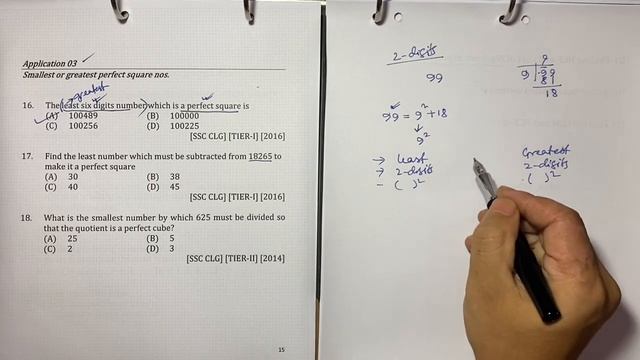 Application 03 ✓
Smallest or greatest perfect square nos.
greatest
16. The (least six digits number) which is a perfect square is
(A) 100489 (B) 100000
(C) 100256 (D) 100225
[SSC CLG] [TIER-I] [2016]
17. Find the least number which must be subtracted from 18265 to
make it a perfect square
(A) 30 (B) 38
(C) 40 (D) 45
[SSC CLG] [TIER-I] [2016]
18. What is the smallest number by which 625 must be divided so
that the quotient is a perfect cube?
(A) 25 (B) 5
(C) 2 (D) 3
[SSC CLG] [TIER-II] [2014]
15
2-digits
99
99 = 9² + 18
↓
9²
→ least
→ 2-digits
- ( )²
9
9 99
81
18
Greatest
2-digits
·( )²